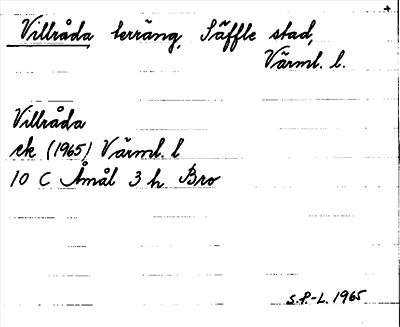 Villråda terräng, Säffle stad,
Värml. l.
Villråda
ek (1965) Värml. l
10 C Åmål 3 h Bro
S.P-L. 1965